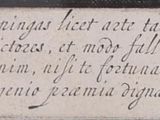 ningas licet arte ta
ctores, et modo fall
nim, nisi te fortuna
genio præmia digna